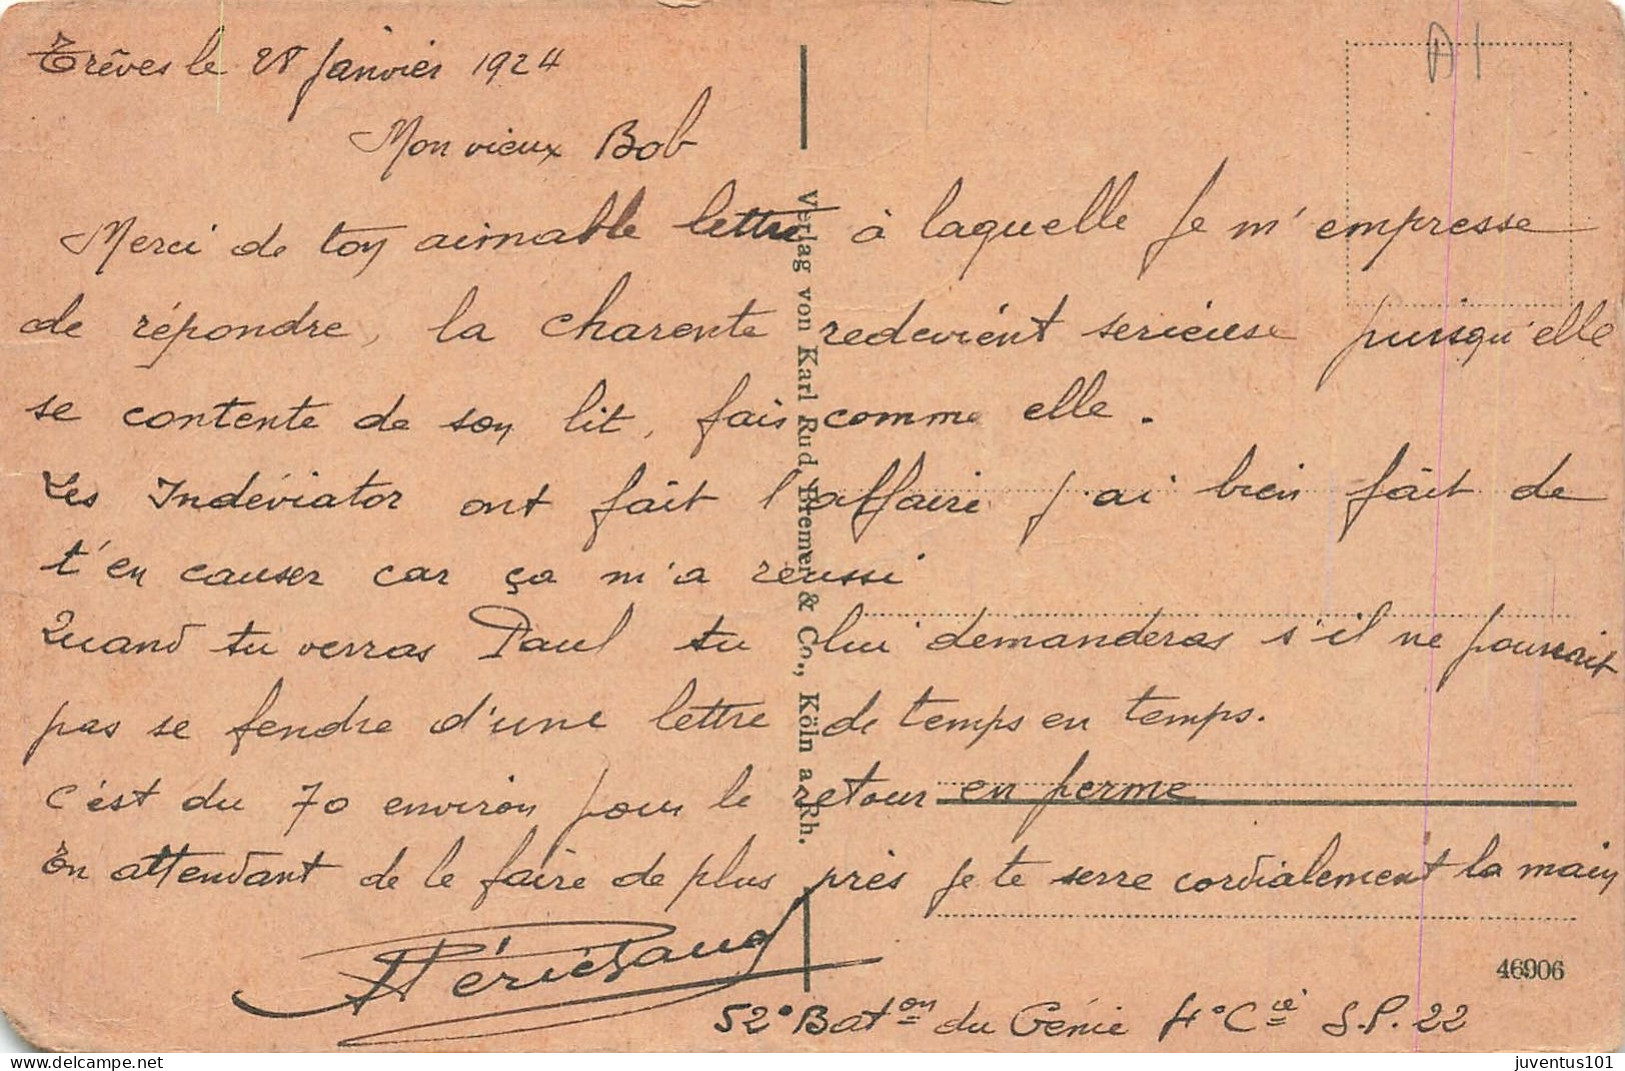 Trêves le 28 Janvier 1924
Mon vieux Bob
Merci de ton aimable lettre à laquelle je m'empresse
de répondre, la charente redevient serieuse puisqu'elle
se contente de son lit, fais comme elle.
Les Indéviator ont fait l'affaire j'ai bien fait de
t'en causer car ça m'a réussi
Quand tu verras Paul tu lui demanderas s'il ne pourrait
pas se fendre d'une lettre de temps en temps.
C'est du 70 environ pour le retour en ferme
En attendant de le faire de plus près je te serre cordialement la main
52° Bat on du Génie 4° Cie S.P. 22
Verlag von Karl Rud. Bremer & Co., Köln a. Rh.
A1
46906
juventus101